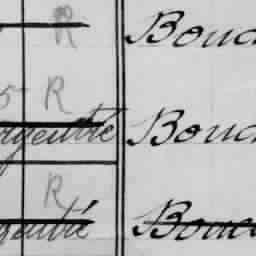 R Bouc
5 R
rgeutré Bouc
R
geutré Bouc